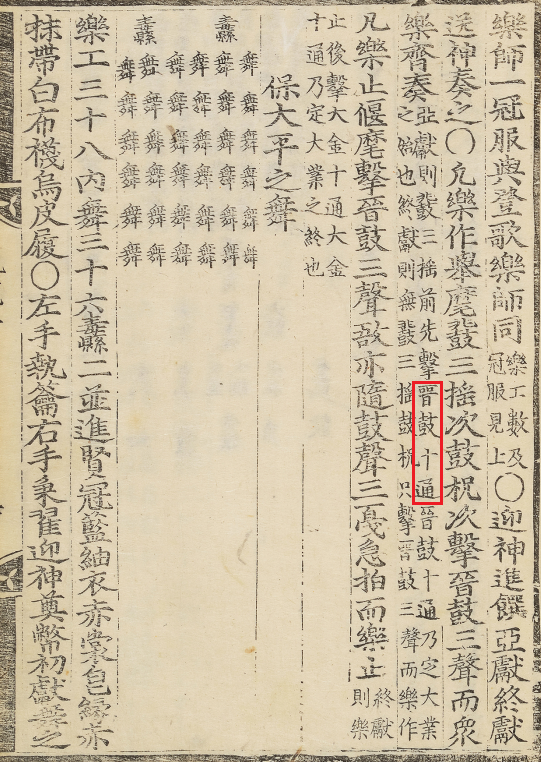 樂師一冠服與登歌樂師同樂工數及冠服見上○迎神進饌亞獻終獻
送神奏之○凡樂作擧麾鼗三搖次鼓柷次擊晉鼓三聲而衆
樂齊奏亞獻則鼗三搖前先擊晉鼓十通晉鼓十通乃定大業
之始也終獻則無鼗三搖鼓柷只擊晉鼓三聲而樂作
凡樂止偃麾擊晉鼓三聲敔亦隨鼓聲三戛急拍而樂止終獻則樂
止後擊大金十通大金
十通乃定大業之終也
保大平之舞
纛縣
纛縣
舞舞舞舞舞舞
舞舞舞舞舞舞
舞舞舞舞舞舞
舞舞舞舞舞舞
舞舞舞舞舞舞
舞舞舞舞舞舞
樂工三十八內舞三十六纛縣二並進賢冠藍紬衣赤裳皂縁赤
抹帶白布襪烏皮履○左手執籥右手秉翟迎神奠幣初獻舞之